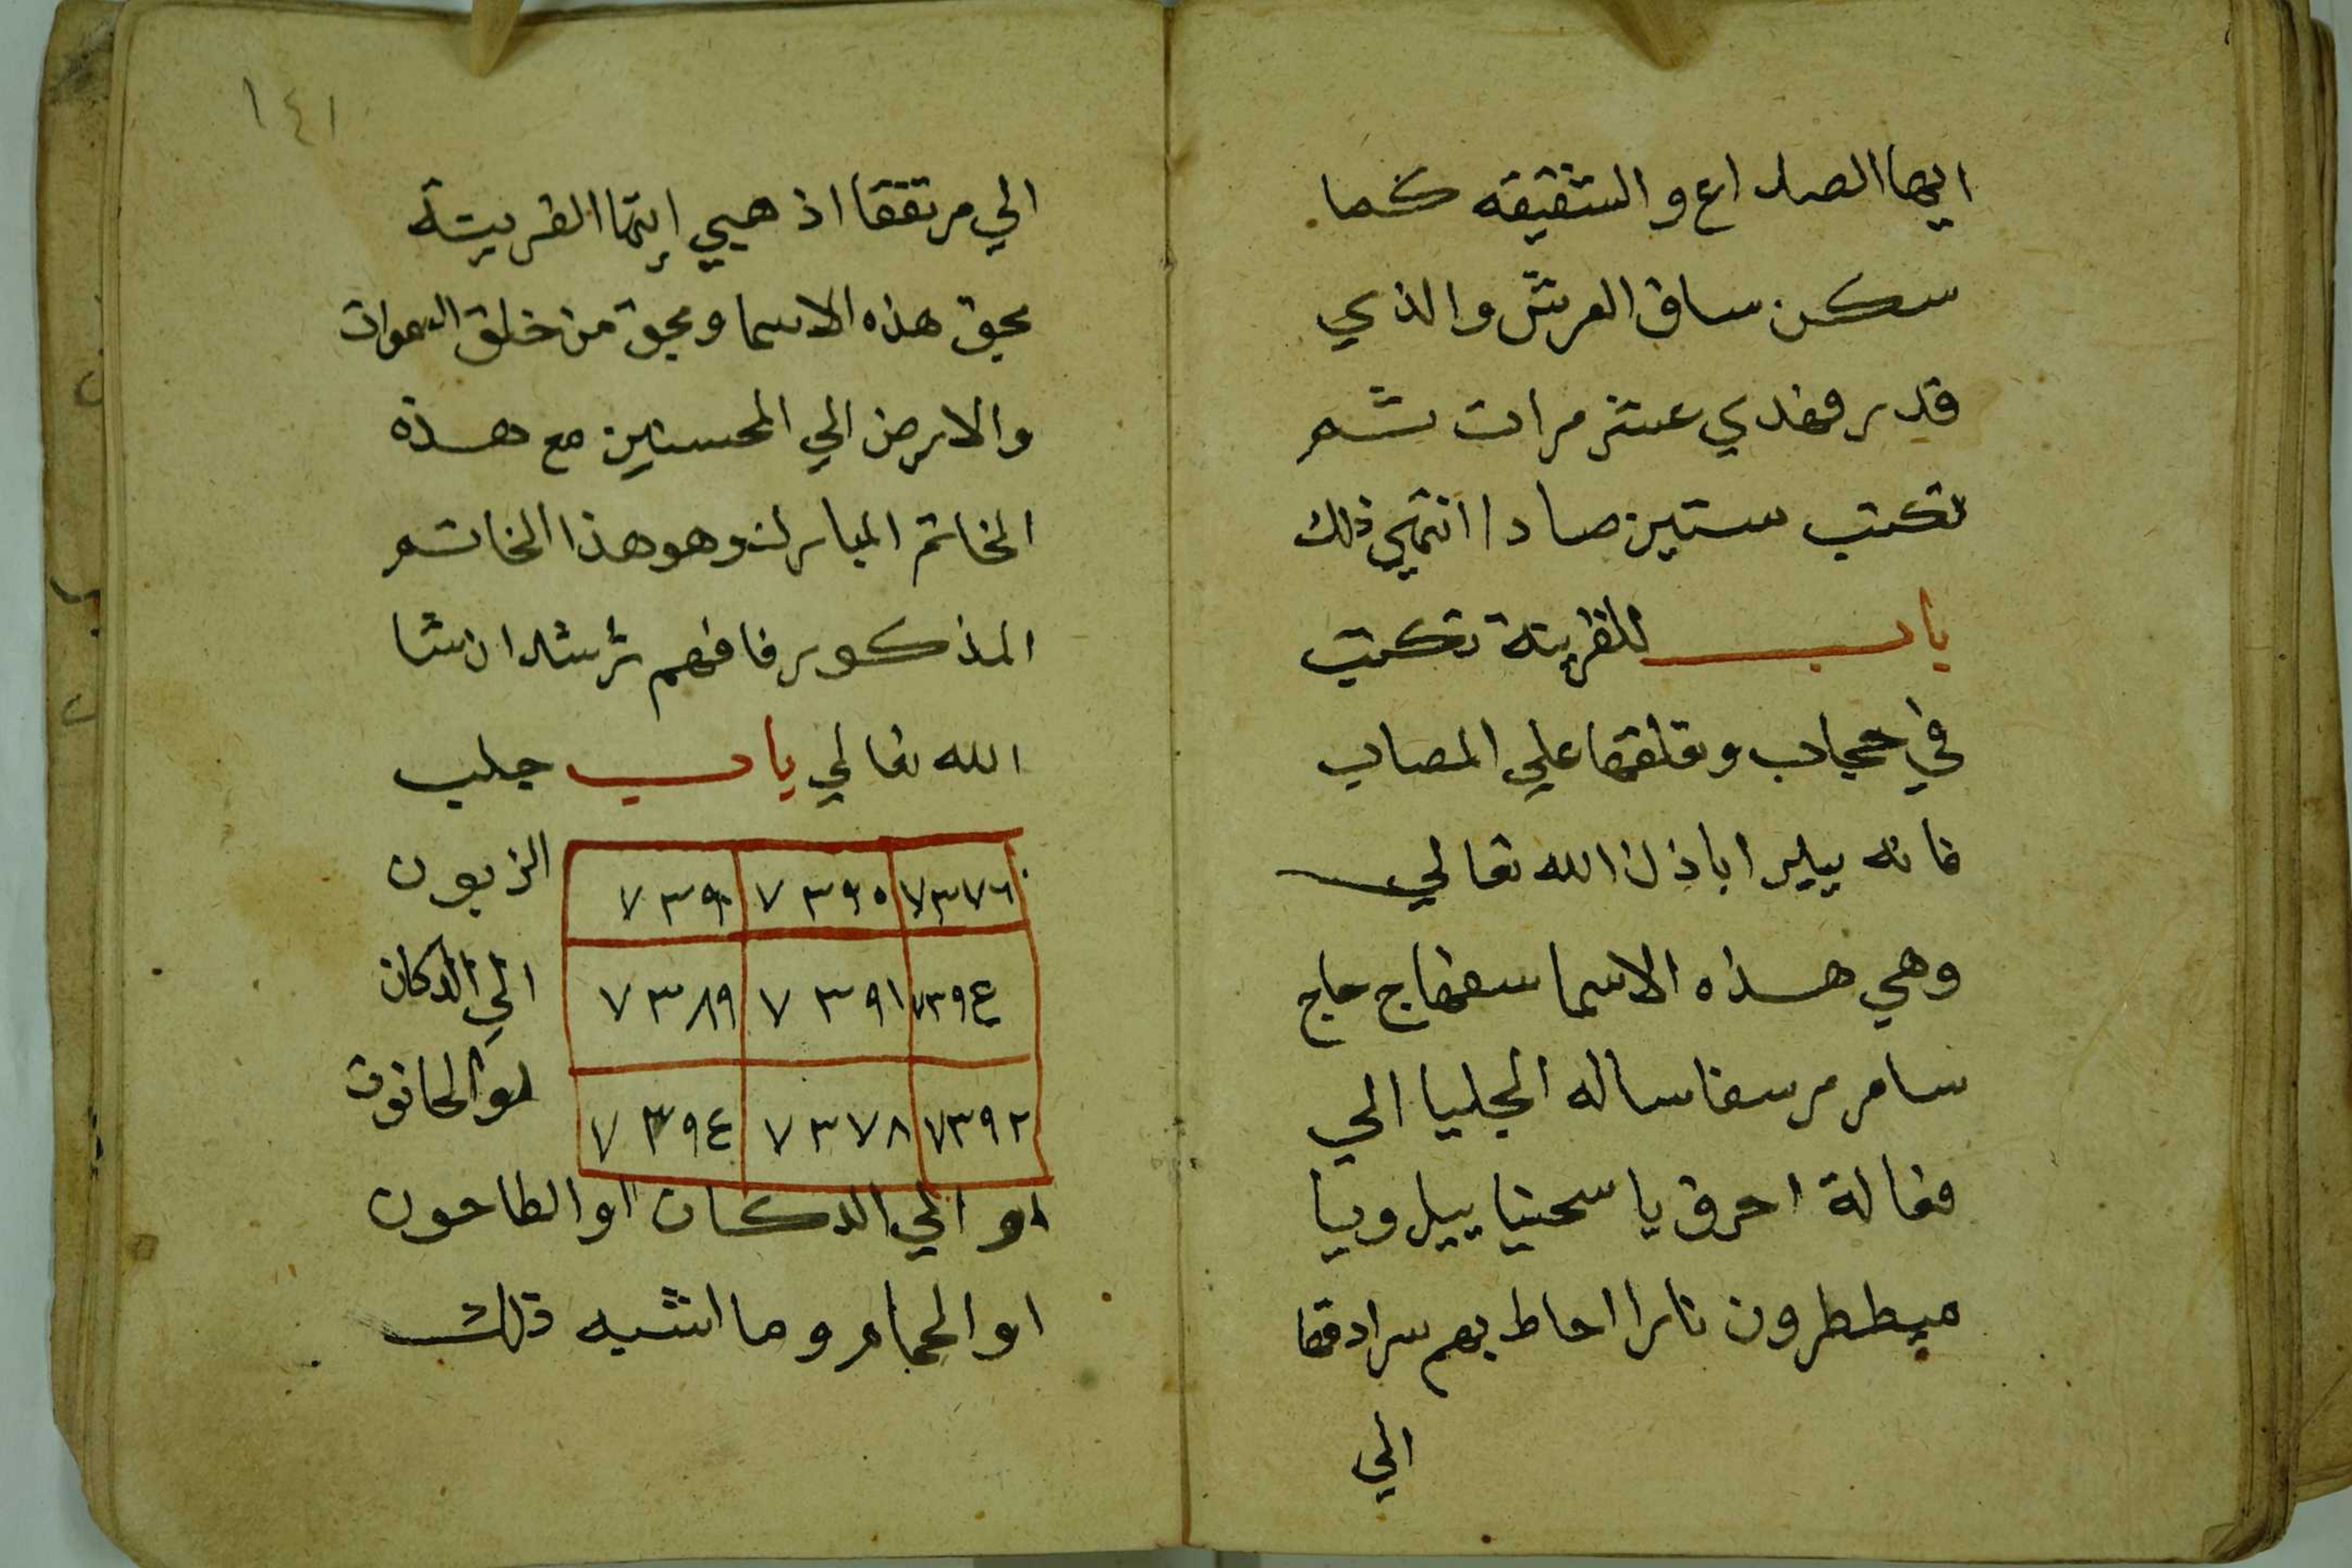 ايها الصداع والشقيقه كما
سكن ساق العرش والذي
قدر فهدي عشر مرات ثم
تكتب ستين صادا انتهي ذلك
باب للقرينة تكتب
في حجاب وتعلقها علي المصاب
فانه يبرا باذن الله تعالي
وهي هذه الاسما سفهاج حاج
سامر مرسفاساله الجليا الي
فغالة احرق يا سحنيا ييل ويا
ميططرون نارا احاط بهم سرادقها
الي
١٤١
الي مرتفقا اذهبي ايتها القرينة
بحق هذه الاسما وبحق من خلق السموات
والارض الي المحسنين مع هذه
الخاتم المبارك وهو هذا الخاتم
المذكور فافهم ترشد ان شا
الله تعالي باب جلب
الزبون
الي الدكان
او الحانوت
٧٣٧٦ ٧٣٩٥ ٧٣٩٠
٧٣٩٤ ٧٣٩١ ٧٣٨٩
٧٣٩٢ ٧٣٧٨ ٧٣٩٤
او الي الدكان او الطاحون
او الحمام وما اشبه ذلك